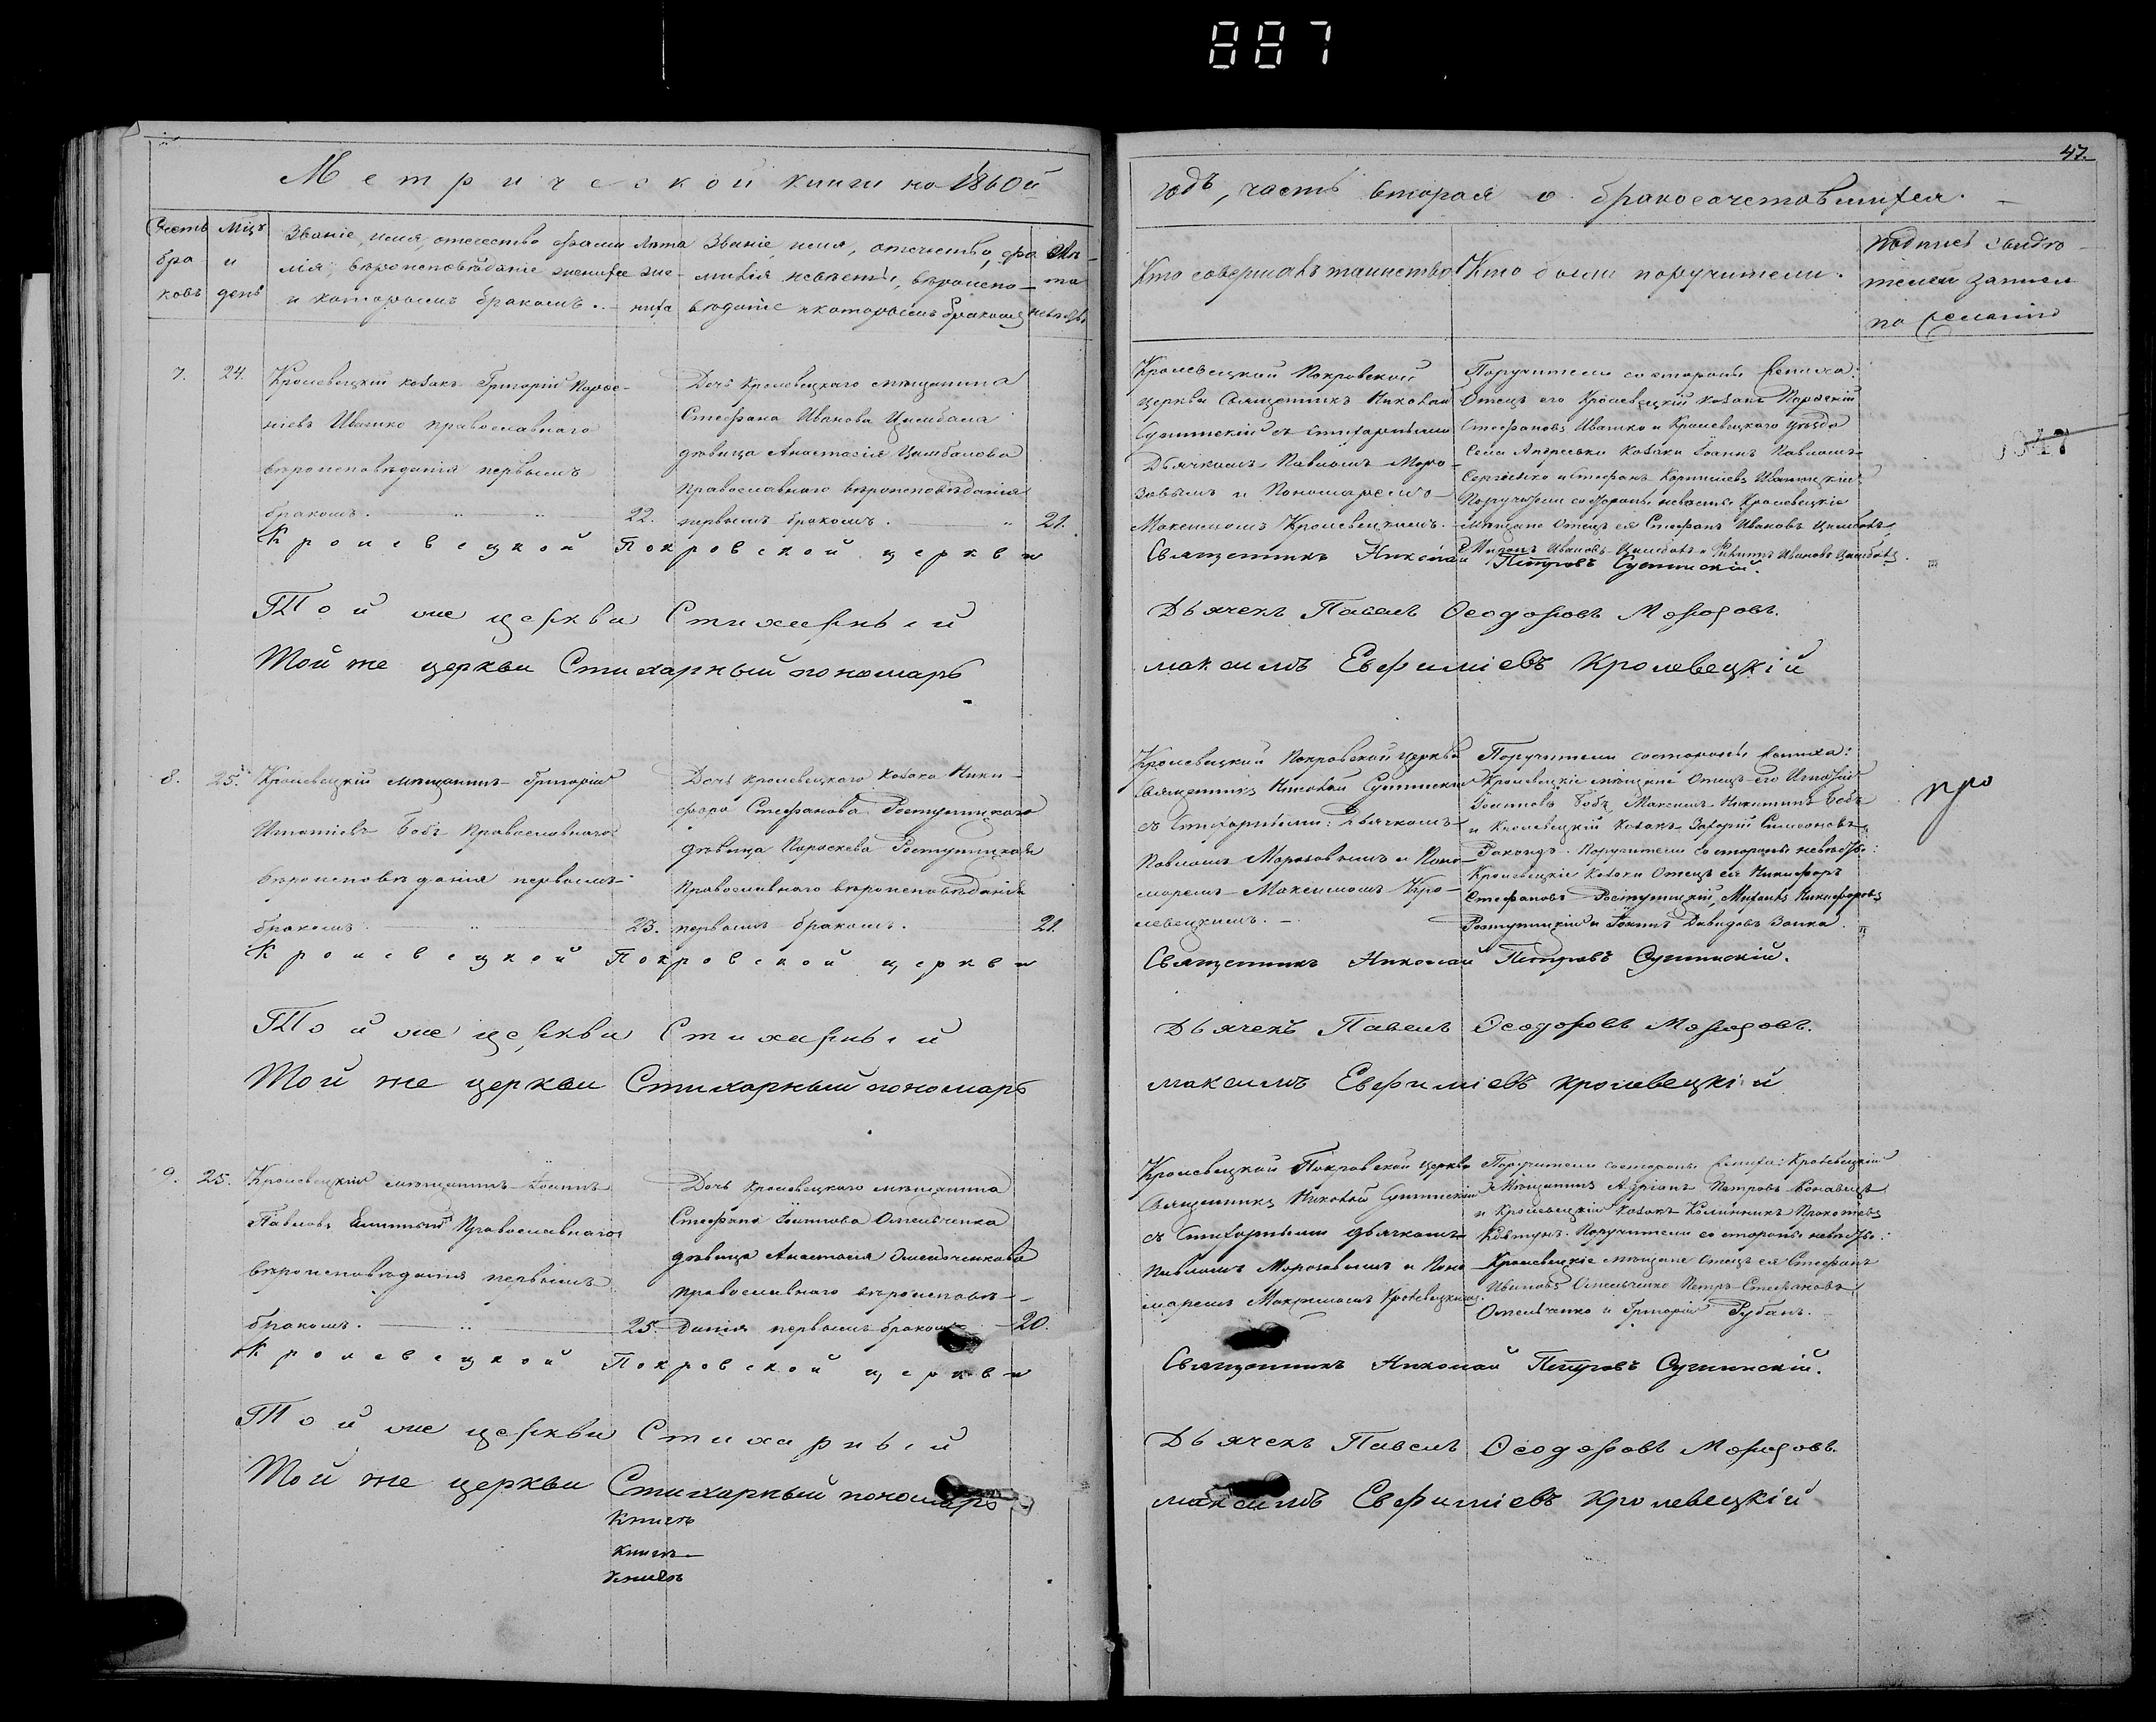 887
47.
Метрической книги на 1860й
годъ, часть вторая о бракосочетавшихся.
Счетъ браковъ
Мцъ и день
Званіе, имя, отечество, фами
лія, вѣроисповѣданіе жениха
и которымъ бракомъ.
Лѣта жениха
Званіе, имя, отечество, фа
милія невѣсты, вѣроиспо-
вѣданіе и которымъ бракомъ
Лѣта невѣсты
Кто совершалъ таинство
Кто были поручители.
Подписъ свидѣ-
телей записи
по желанію
7. 24.
Кролевецкій козакъ Григорій
Ивашко православнаго
вѣроисповѣданія первымъ
бракомъ. 22.
Дочь Кролевецкаго мѣщанина
Стефана Иванова Цимбала
дѣвица Анастасія Цимбалова
православнаго вѣроисповѣданія
первымъ бракомъ. 21.
Кролевецкой Покровской
церкви Священникъ Николай
съ стихарными
Дьячкомъ Павломъ Моро-
зовымъ и Пономаремъ
Максимомъ Кролевецкимъ.
Поручители состороны жениха:
Отецъ его Кролевецкій козакъ
Стефановъ Ивашко и Кролевецкаго уѣзда
Села козаки Іоаннъ Павловъ
и Стефанъ Корниліевъ
Поручители состороны невѣсты Кролевецкіе
мѣщане Отецъ ея Стефанъ Ивановъ Цимбалъ,
Ивановъ Цимбалъ и Ивановъ Цимбалъ.
Кролевецкой Покровской церкви
Священникъ Николай Петровъ
Той же церкви Стихарный
Дьячекъ Павелъ Ѳеодоровъ Морозовъ.
Той же церкви Стихарный пономарь
Максимъ Евфиміевъ Кролевецкій
8. 25.
Кролевецкій мѣщанинъ Григорій
Игнатіевъ Бобъ Православнаго
вѣроисповѣданія первымъ
бракомъ 23.
Дочь кролевецкаго козака Ники-
фора Стефанова
дѣвица Параскева
Православнаго вѣроисповѣданія
первымъ бракомъ. 21.
Кролевецкой Покровской церкви
Священникъ Николай
съ Стихарными: Дьячкомъ
Павломъ Морозовымъ и Поно
маремъ Максимомъ Кро-
левецкимъ.
Поручители состороны жениха:
Кролевецкіе мѣщане Отецъ его Игнатій
Бобъ, Максимъ Никитинъ Бобъ
и Кролевецкій козакъ Захарій Симеоновъ
Поручители со стороны невѣсты:
Кролевецкіе козаки Отецъ ея Никифоръ
Стефановъ Михаилъ Никифоровъ
и Іоаннъ Давидовъ Заика.
про
Кролевецкой Покровской церкви
Священникъ Николай Петровъ
Той же церкви Стихарный
Дьячекъ Павелъ Ѳеодоровъ Морозовъ.
Той же церкви Стихарный пономарь
Максимъ Евфиміевъ Кролевецкій
9. 25.
Кролевецкій мѣщанинъ Іоаннъ
Павловъ Православнаго
вѣроисповѣданія первымъ
бракомъ. 25.
Дочь Кролевецкаго мѣщанина
Стефана Омельченка
дѣвица Анастасія Омельченкова
православнаго вѣроисповѣ-
данія первымъ бракомъ 20.
Кролевецкой Покровской церкви
Священникъ Николай
съ Стихарными дьячкомъ
Павломъ Морозовымъ и Поно
маремъ Максимомъ Кролевецкимъ
Поручители состороны жениха: Кролевецкій
мѣщанинъ Адріанъ Петровъ
и Кролевецкій козакъ
Поручители со стороны невѣсты:
Кролевецкіе мѣщане Отецъ ея Стефанъ
Ивановъ Омельченко Петръ Стефановъ
Омельченко и Григорій Рубанъ.
Кролевецкой Покровской церкви
Священникъ Николай Петровъ
Той же церкви Стихарный
Дьячекъ Павелъ Ѳеодоровъ Морозовъ.
Той же церкви Стихарный пономарь
Максимъ Евфиміевъ Кролевецкій